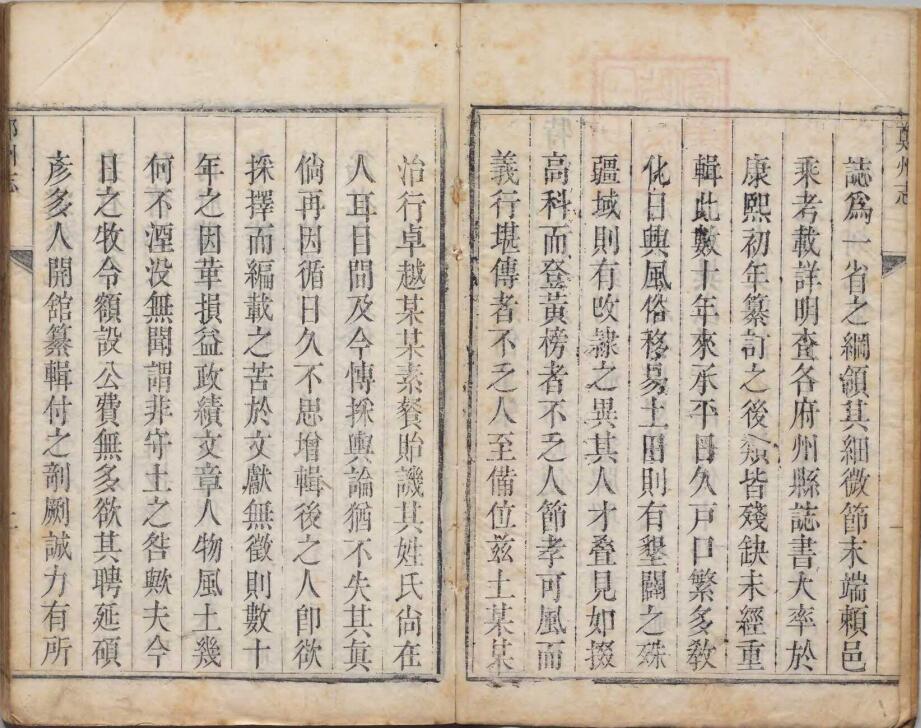 鄭州志
誌爲一省之綱領其細微節末端頼邑
乘考載詳明查各府州縣誌書大率於
康熙初年纂訂之後類皆殘缺未經重
輯此數十年來承平日久戸口繁多敎
化日興風俗移易土田則有墾闢之殊
疆域則有攺隷之異其人才叠見如掇
高科而登黃榜者不乏人節孝可風而
義行堪傳者不乏人至備位兹土某某
治行卓越某某素餐貽譏其姓氏尙在
人耳目間及今愽採輿論猶不失其眞
倘再因循日久不思增輯後之人卽欲
採擇而編載之苦於文獻無徵則數十
年之因革損益政績文章人物風土幾
何不湮没無聞謂非守土之咎歟夫今
日之牧令額設公費無多欲其聘延碩
彥多人開館纂輯付之剞劂誠力有所
州志